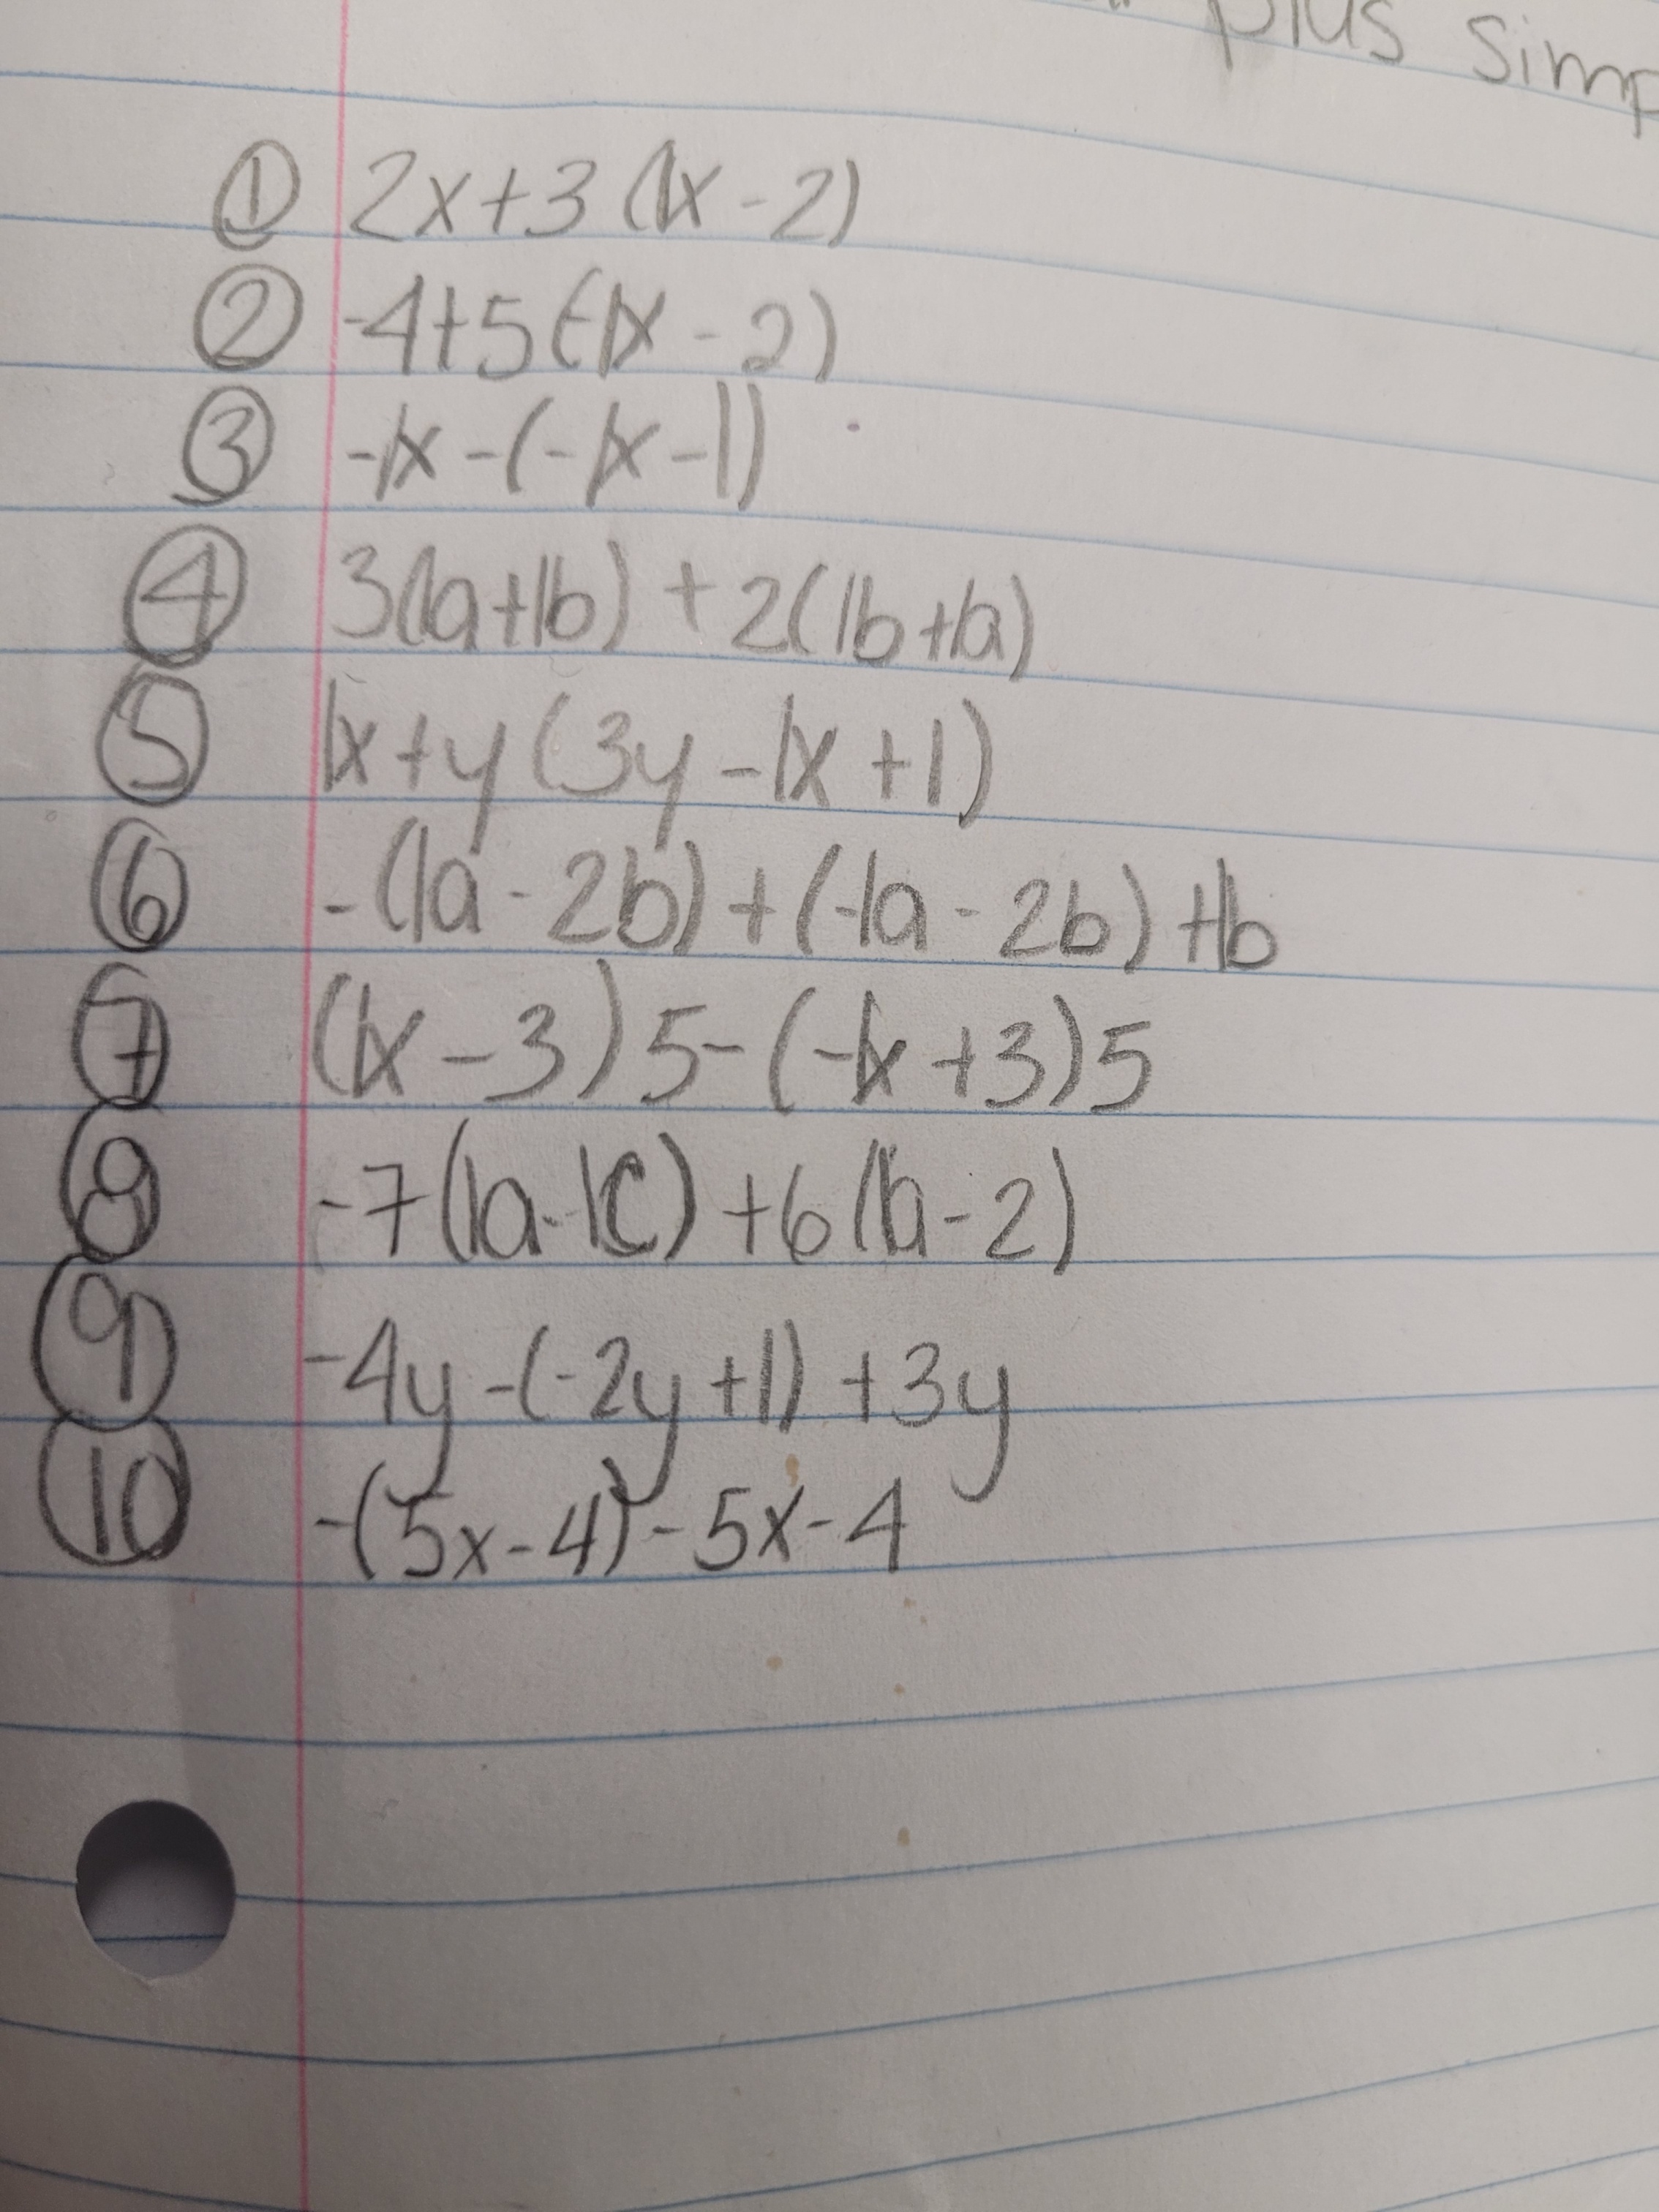 plus simp
① 2x+3(1x-2)
② -4+5(-1x-2)
③ -1x-(-1x-1)
④ 3(1a+1b)+2(1b+1a)
⑤ 1x+y(3y-1x+1)
⑥ -(1a-2b)+(-1a-2b)+1b
⑦ (1x-3)5-(-1x+3)5
⑧ -7(1a-1c)+6(1a-2)
⑨ -4y-(-2y+1)+3y
⑩ -(5x-4)-5x-4